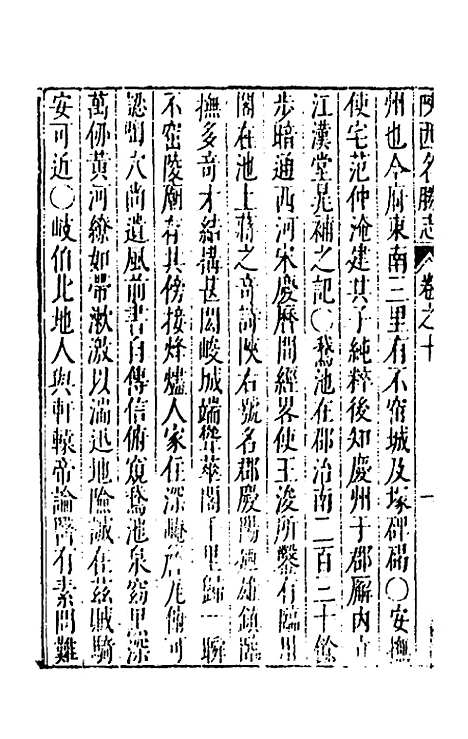 陝西名勝志 卷之十 一
州也今府東南三里有不窋城及塚碑碣○安撫
使宅范仲淹建其子純粹後知慶州于郡廨内立
江漢堂晁補之記○鵞池在郡治南二百三十餘
步暗通西河宋慶曆間經界使王浚所鑿有臨川
閣在池上蔣之奇詩陝右號名郡慶陽雄鎮臨
撫多奇才結搆甚閎峻城端聳華閣千里歸一瞬
不窋陵廟存其傍接烽爐人家在深崦居尤陶可
認陶穴尚遺風前書自傳信俯窺鵞池泉窈黑深
萬仞黄河繚如帶漱激以湍迅地險誠在茲賊騎
安可近○岐伯北地人與軒轅帝論醫有素問難